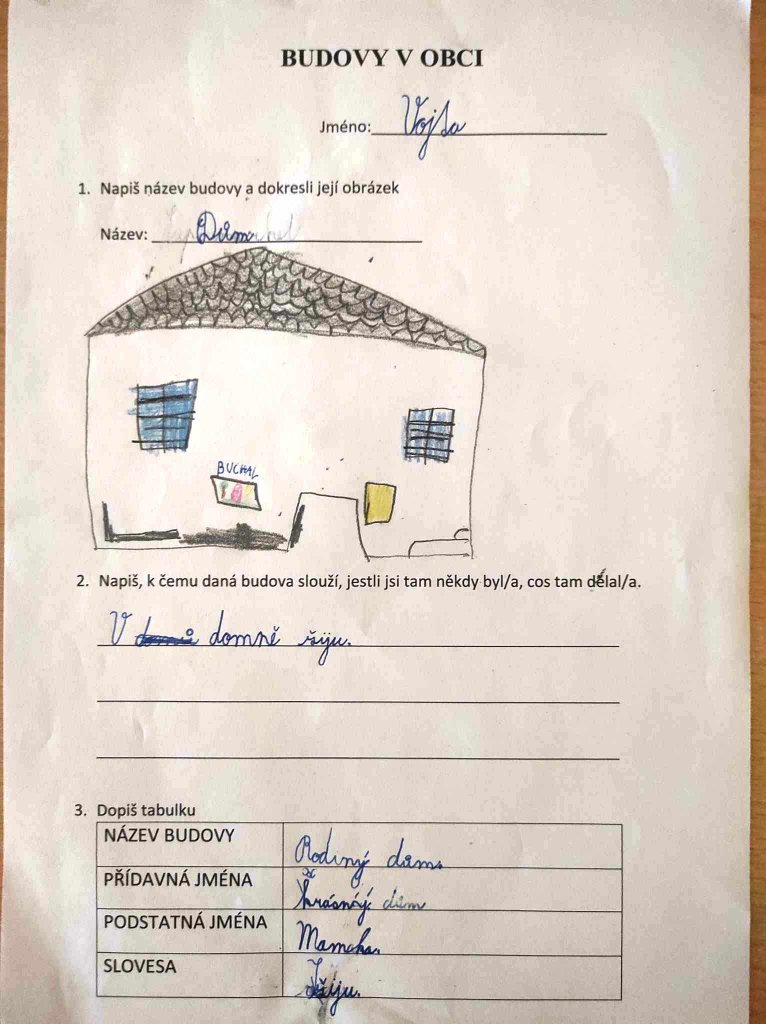 BUDOVY V OBCI
Jméno: Vojta
1. Napiš název budovy a dokresli její obrázek
Název: Dům
BUCHAL
2. Napiš, k čemu daná budova slouží, jestli jsi tam někdy byl/a, cos tam dělal/a.
V domně žiju.
3. Dopiš tabulku
NÁZEV BUDOVY Rodiný dům.
PŘÍDAVNÁ JMÉNA krásný dům
PODSTATNÁ JMÉNA Mamcha.
SLOVESA žiju.